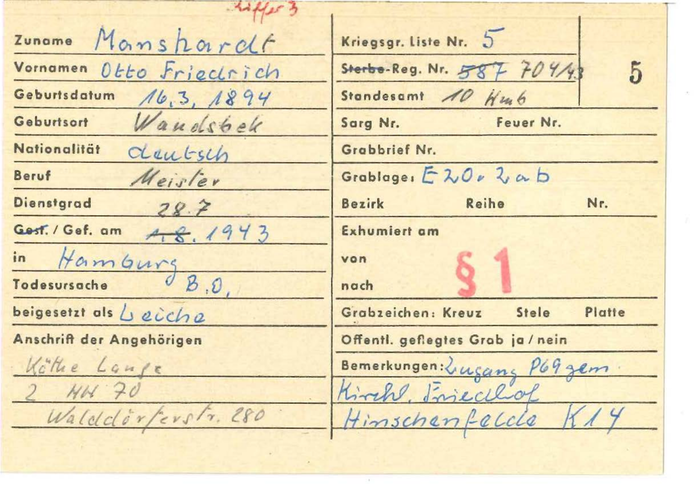 Ziffer 3
Zuname Manshardt
Vornamen Otto Friedrich
Geburtsdatum 16.3.1894
Geburtsort Wandsbek
Nationalität deutsch
Beruf Meister
Dienstgrad
28.7
Gest. / Gef. am 1.8. 1943
in Hamburg
Todesursache B.O.
beigesetzt als Leiche
Anschrift der Angehörigen
Käthe Lange
2 HH 70
Walddörferstr. 280
Kriegsgr. Liste Nr. 5
Sterbe-Reg. Nr. 587 704/43
5
Standesamt 10 Hmb
Sarg Nr. Feuer Nr.
Grabbrief Nr.
Grablage: E 20. 2 a b
Bezirk Reihe Nr.
Exhumiert am
von
nach
§ 1
Grabzeichen: Kreuz Stele Platte
Öffentl. gepflegtes Grab ja / nein
Bemerkungen: Zugang P69 gem.
Kirchl. Friedhof
Hinschenfelde K14